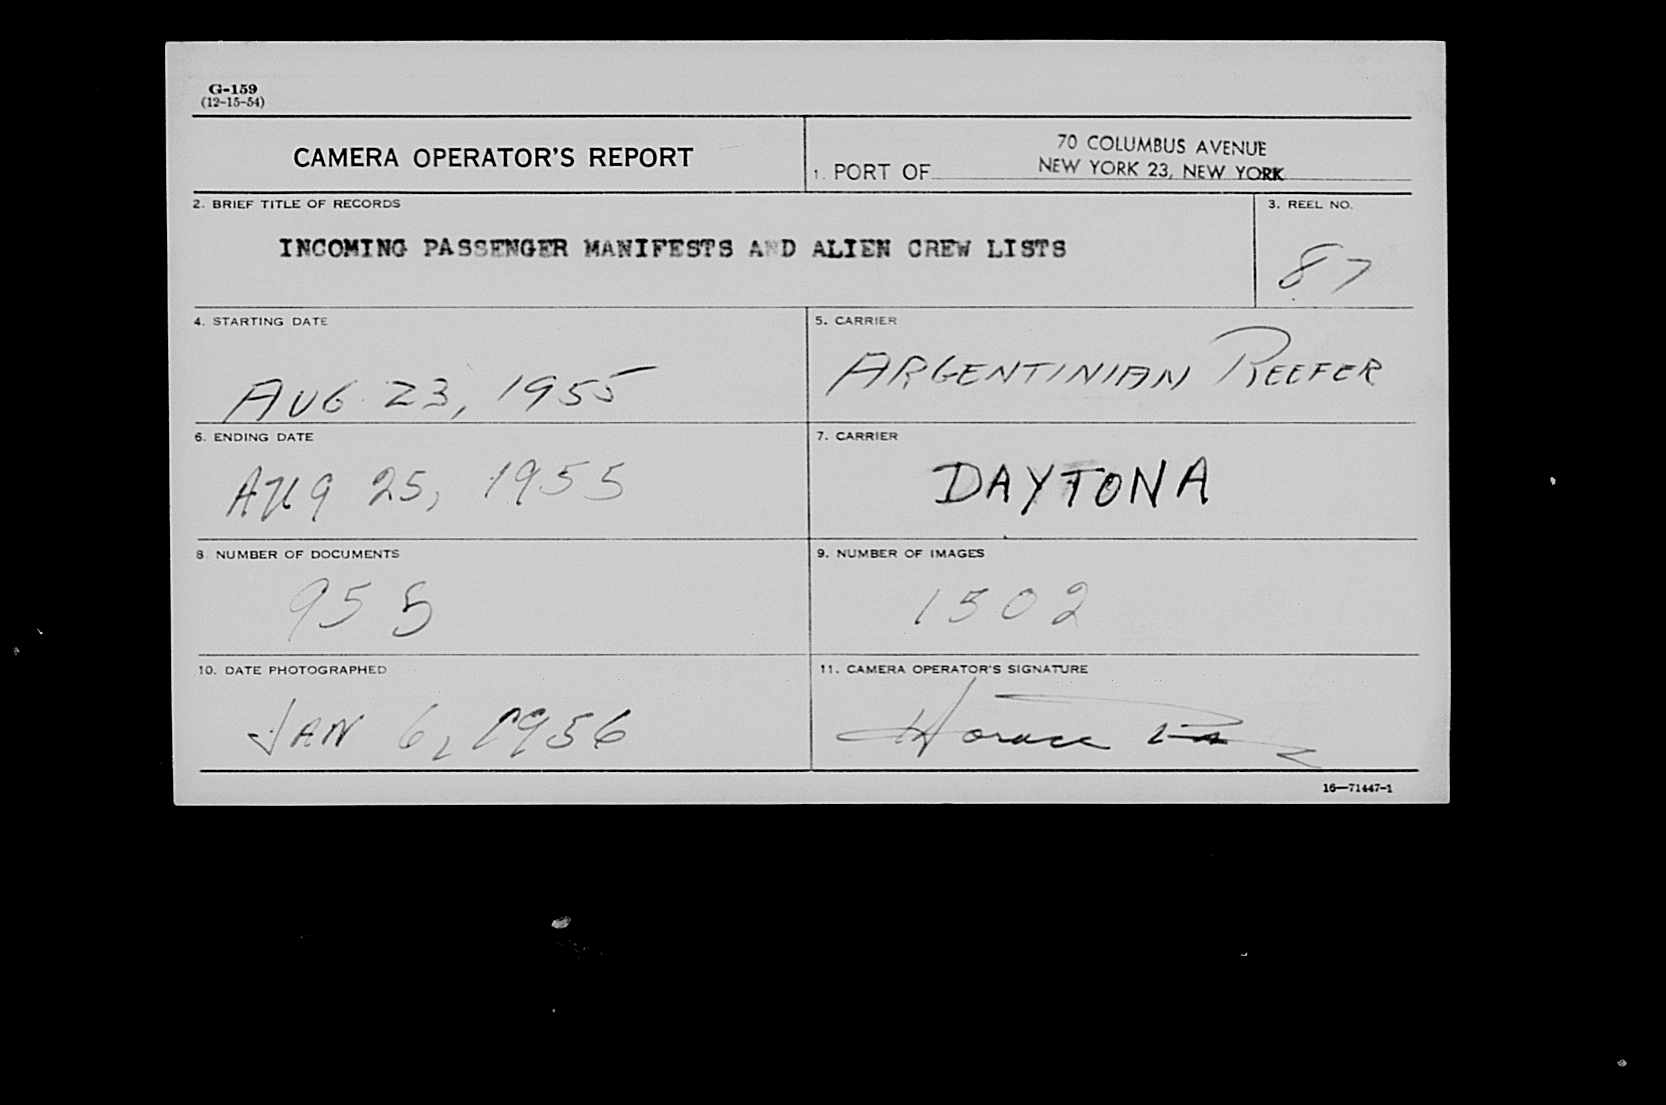 G-159
(12-15-54)
CAMERA OPERATOR'S REPORT
70 COLUMBUS AVENUE
1. PORT OF NEW YORK 23, NEW YORK
2. BRIEF TITLE OF RECORDS
INCOMING PASSENGER MANIFESTS AND ALIEN CREW LISTS
3. REEL NO.
87
4. STARTING DATE
AUG 23, 1955
5. CARRIER
ARGENTINIAN REEFER
6. ENDING DATE
AUG 25, 1955
7. CARRIER
DAYTONA
8. NUMBER OF DOCUMENTS
955
9. NUMBER OF IMAGES
1502
10. DATE PHOTOGRAPHED
JAN 6, 1956
11. CAMERA OPERATOR'S SIGNATURE
Horace
16—71447-1